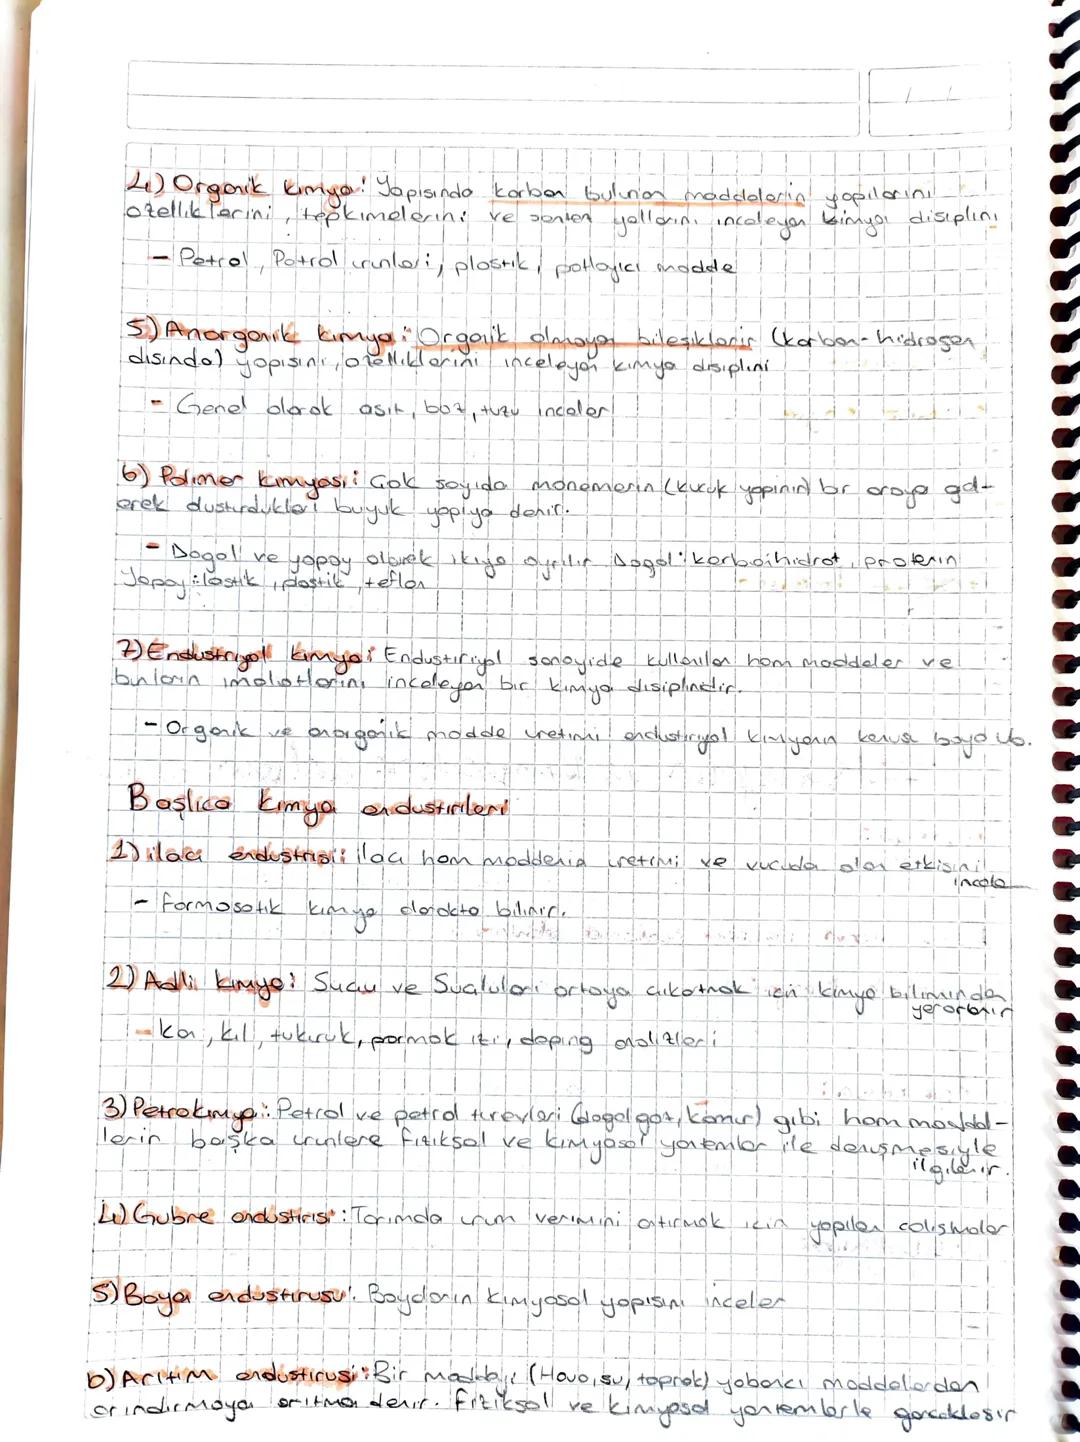 / /
4) Organik kimya: Yapısında karbon bulunan maddelerin yapılarını
özelliklerini, tepkimelerini ve sentez yollarını inceleyen kimya disiplini
- Petrol, Petrol ürünleri, plastik, patlayıcı madde
5) Anorganik kimya: Organik olmayan bileşiklerin (karbon-hidrojen
dışında) yapısını, özelliklerini inceleyen kimya disiplini
- Genel olarak asit, baz, tuzu inceler
6) Polimer kimyası: Çok sayıda monomerin (küçük yapının) bir araya gel-
erek oluşturdukları büyük yapıya denir.
- Doğal ve yapay olarak ikiye ayrılır Doğal: karbonhidrat, protein
Yapay: lastik, plastik, teflon
7) Endustriyal kimya: Endustiriyal sanayide kullanılan ham maddeler ve
bunların imalatlarını inceleyen bir kimya disiplinidir.
- Organik ve anorganik madde üretimi endustiriyal kimyanın
Başlıca kimya endustirileri
1) ilaç endustrisi: ilaç ham maddenin üretimi ve vücuda olan etkisini
incele
- farmosotik kimya olarakta bilinir.
2) Adli kimya: Suçu ve Suçluları ortaya çıkatmak için kimya biliminden
yararlanır
- Kan, kıl, tükürük, parmak izi, doping analizleri
3) Petrokimya: Petrol ve petrol türevleri (doğal gaz, kömür) gibi ham maddel-
lerin başka ürünlere fiziksel ve kimyasal yöntemler ile dönüşmesiyle
ilgilenir.
4) Gübre endustirisi: Tarımda ürün verimini artırmak için yapılan çalışmalar
5) Boya endustirusu: Boyaların kimyasal yapısını inceler
6) Arıtım endustirusi: Bir maddeyi (Hava, su, toprak) yabancı maddelerden
arındırmaya arıtma denir. Fiziksel ve kimyasal yöntemlerle gerçekleşir